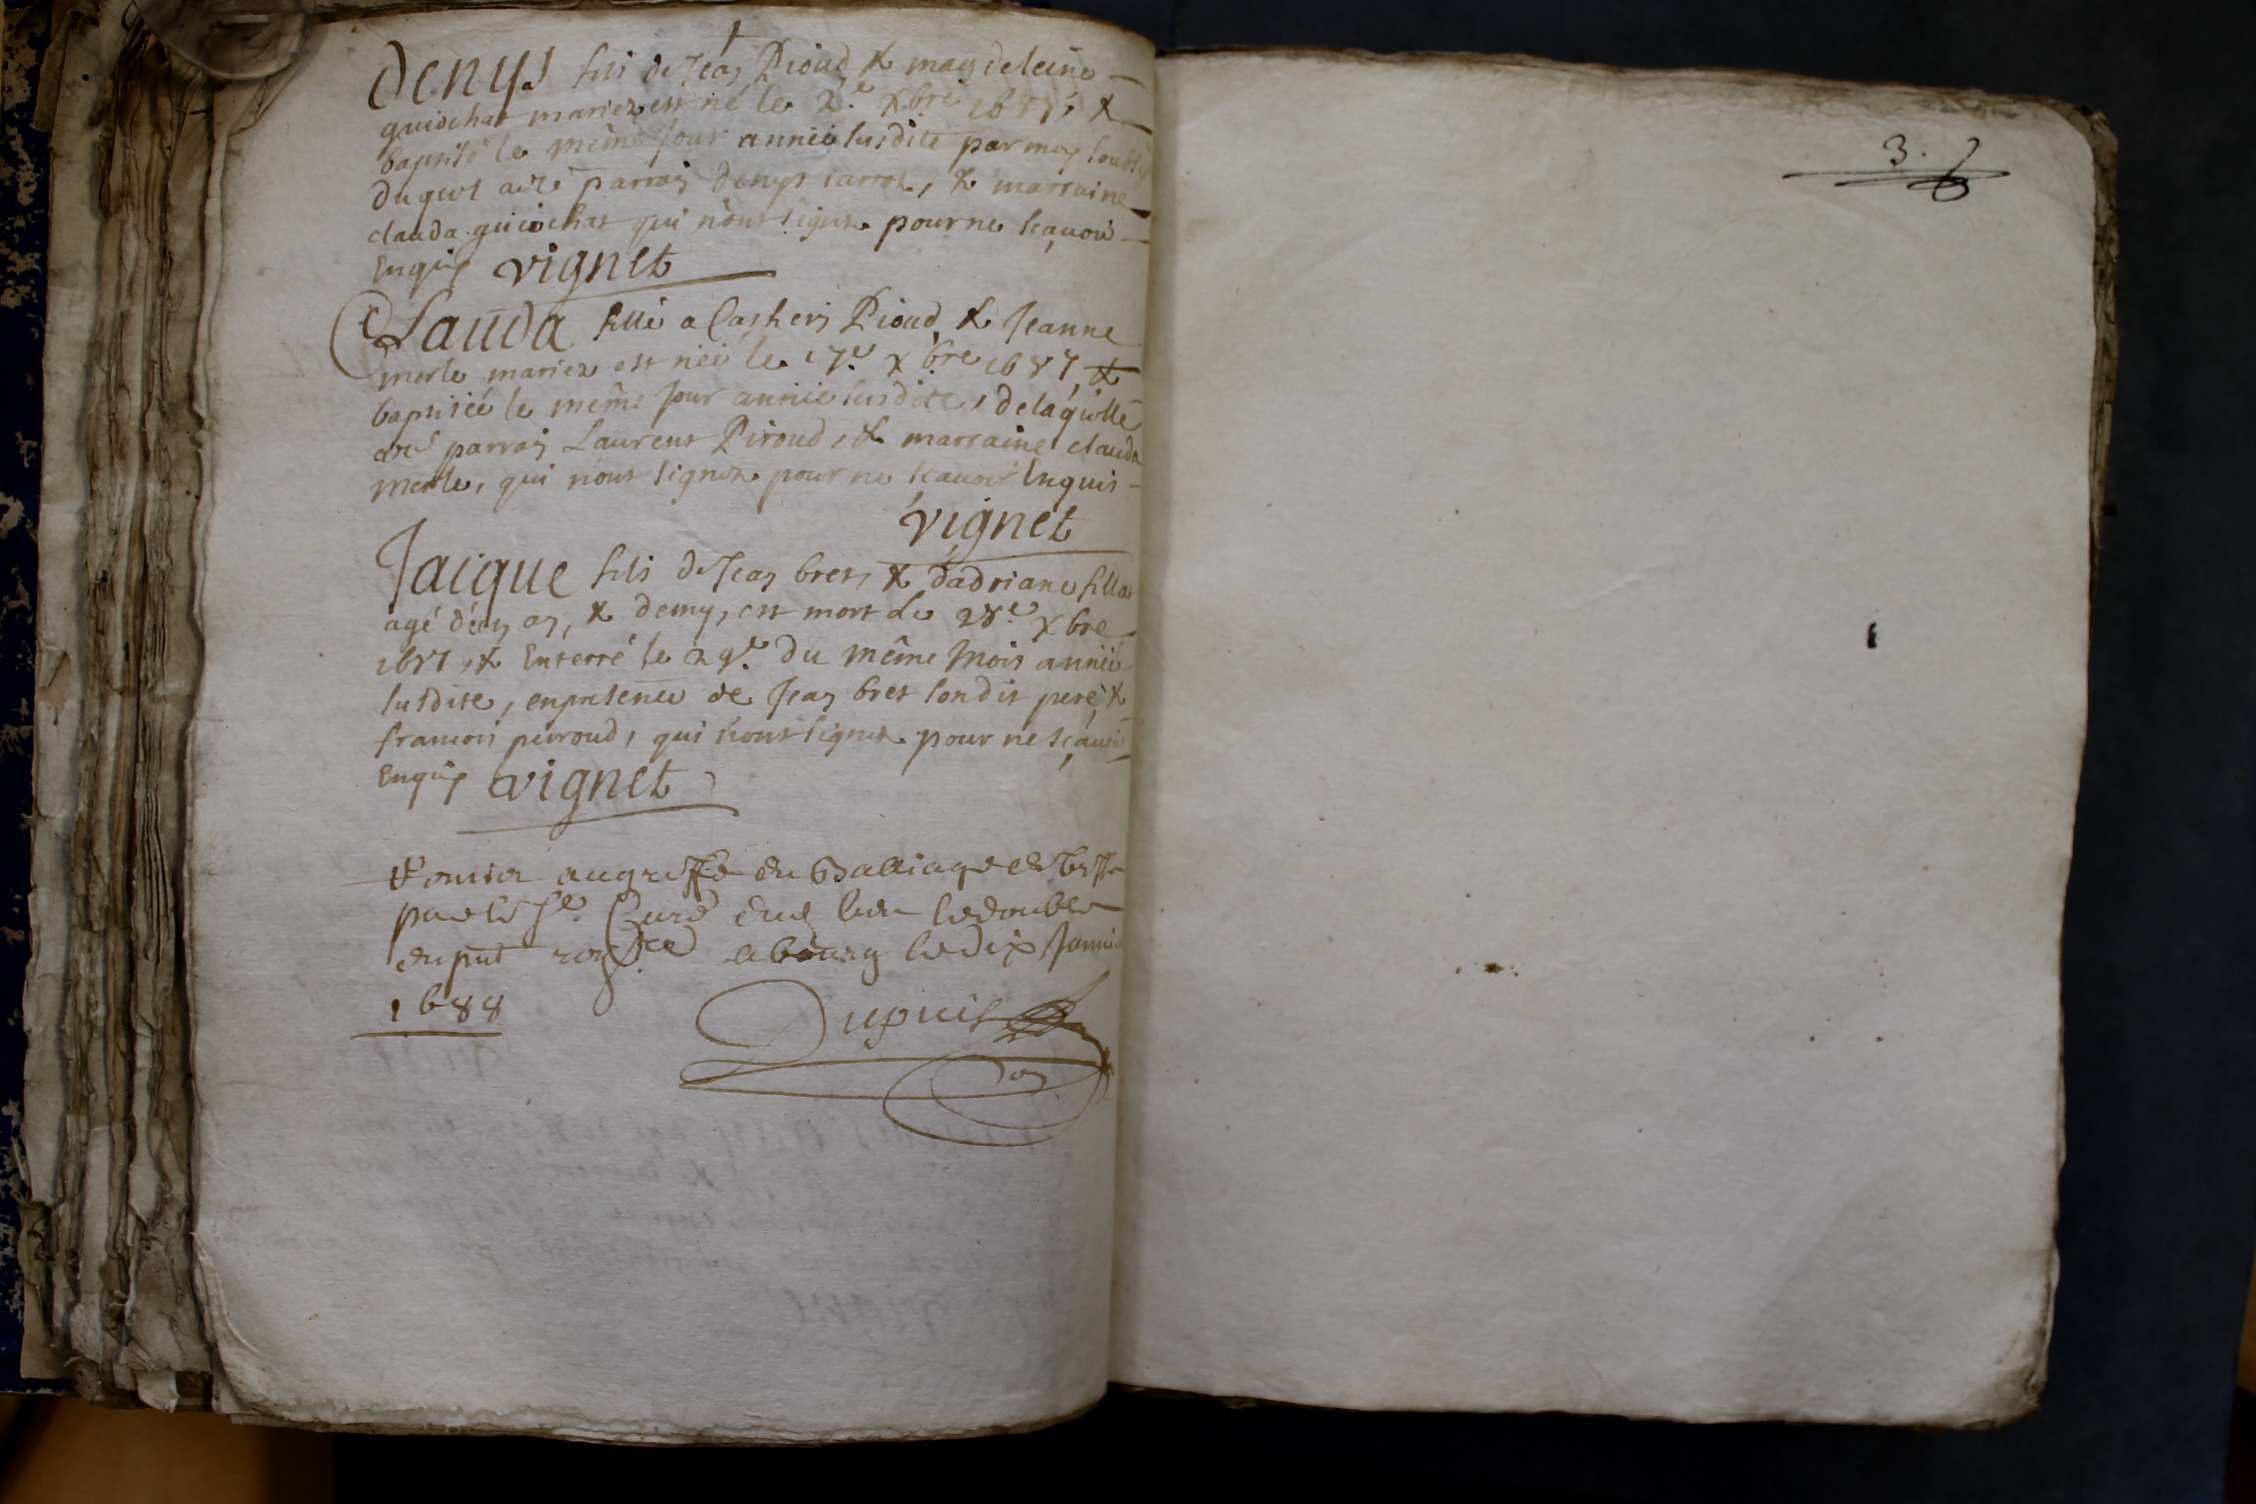 Denys fils de Jean Pioud & magdeleine
guiochat mariez est né le 2.e Xbre 1687, &
baptisé le même Jour année susdite par moy soubs
duquel a été parrain denys carroz, & marraine
clauda guiochat qui n'ont signez pour ne sçavoir
Enquis vignet
Clauda fille a Jean Pioud & Jeanne
merle mariez est née le 17.e xbre 1687, &
baptisée le même Jour année susdite, de laquelle
été parrain Laurent Piroud, & marraine clauda
merle, qui n'ont signez pour ne sçavoir Enquis
vignet
Jaique fils de Jean bret, & d'adriane filla
agé d'un an, & demy, est mort Le 28.e xbre
1687, & Enterré le 29.e du même Mois année
susdite, en presence de Jean bret son dit pere, &
francois peiroud, qui n'ont signez pour ne sçavoir
Enquis vignet
au greffe du Balliage de
par le Sr. Curé dud. lieu le double
du pnt a bourg le dix Janvier
1688
Dupuis
3.